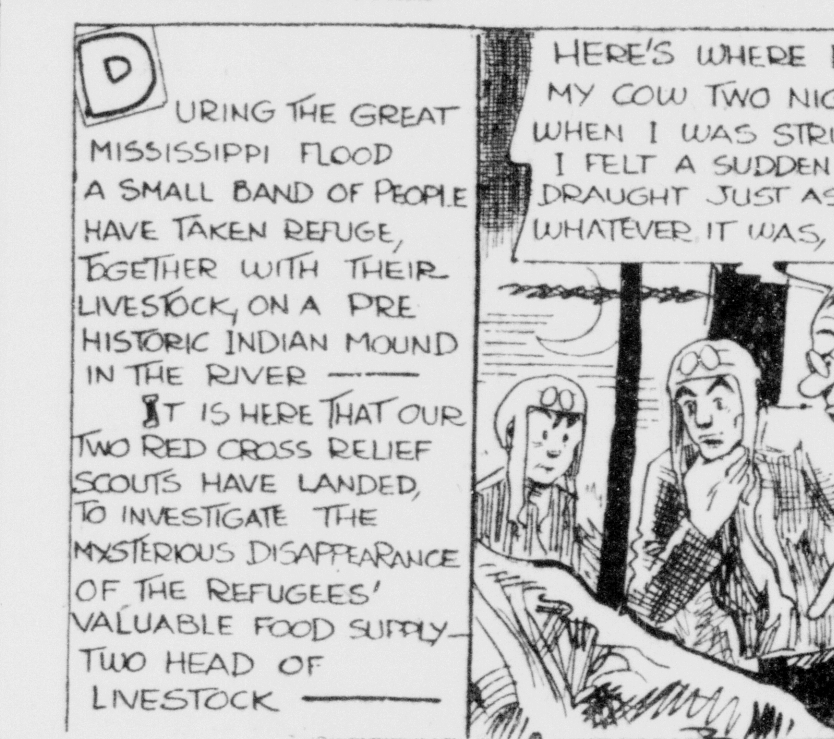 DURING THE GREAT
MISSISSIPPI FLOOD
A SMALL BAND OF PEOPLE
HAVE TAKEN REFUGE,
TOGETHER WITH THEIR
LIVESTOCK, ON A PRE
HISTORIC INDIAN MOUND
IN THE RIVER ——
IT IS HERE THAT OUR
TWO RED CROSS RELIEF
SCOUTS HAVE LANDED,
TO INVESTIGATE THE
MYSTERIOUS DISAPPEARANCE
OF THE REFUGEES'
VALUABLE FOOD SUPPLY—
TWO HEAD OF
LIVESTOCK ——
HERE'S WHERE
MY COW TWO NIG
WHEN I WAS STRU
I FELT A SUDDEN
DRAUGHT JUST AS
WHATEVER IT WAS,